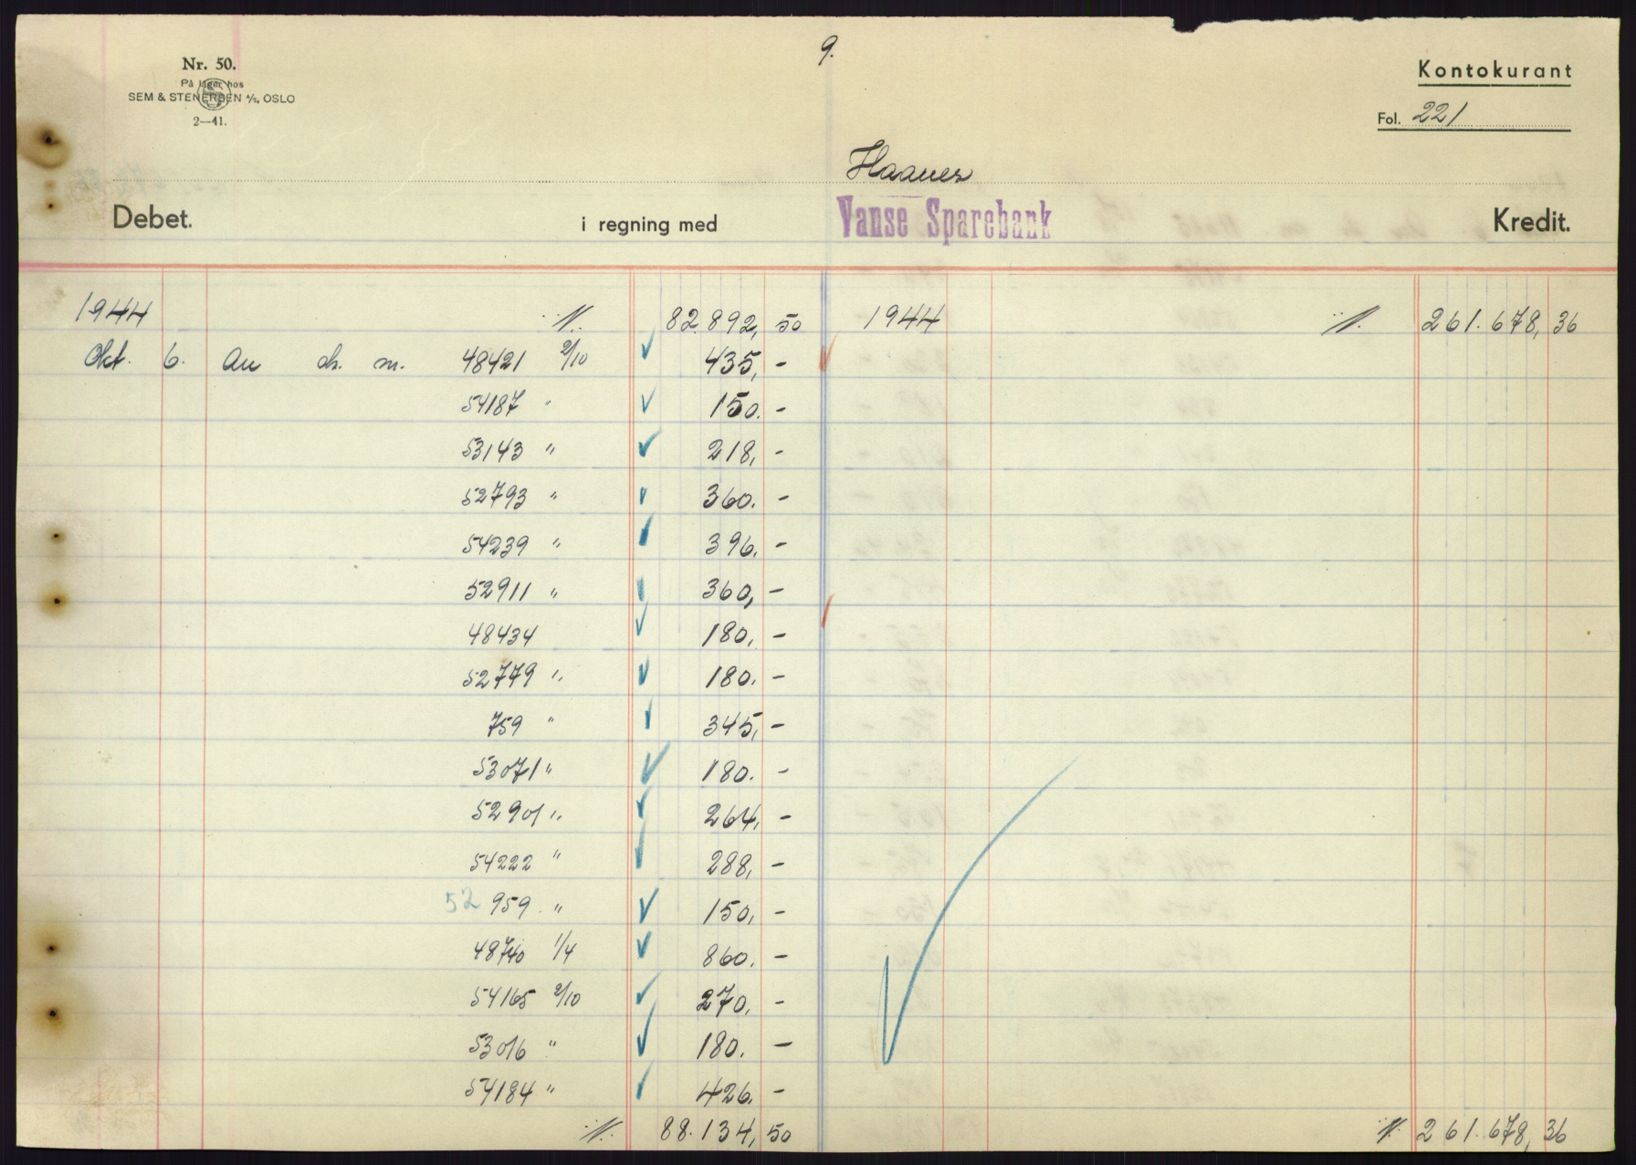 9.
Nr. 50.
På lager hos
SEM & STENERSEN A/S, OSLO
2—41.
Kontokurant
Fol. 221
Haanes
Debet. i regning med Vanse Sparebank Kredit.
1944 82.892,50 1944 261.678,36
Okt. 6. An ch. m. 48421 2/10 435,-
54187 " 150.-
53143 " 218,-
52793 " 360.-
54239 " 396,-
52911 " 360,-
48434 180,-
52779 " 180.-
759 " 345,-
53071 " 180.-
52901 " 264,-
54222 " 288,-
52 959 " 150,-
48740 1/4 860.-
54165 2/10 270,-
53016 " 180.-
54184 " 426.-
88.134,50 261.678,36